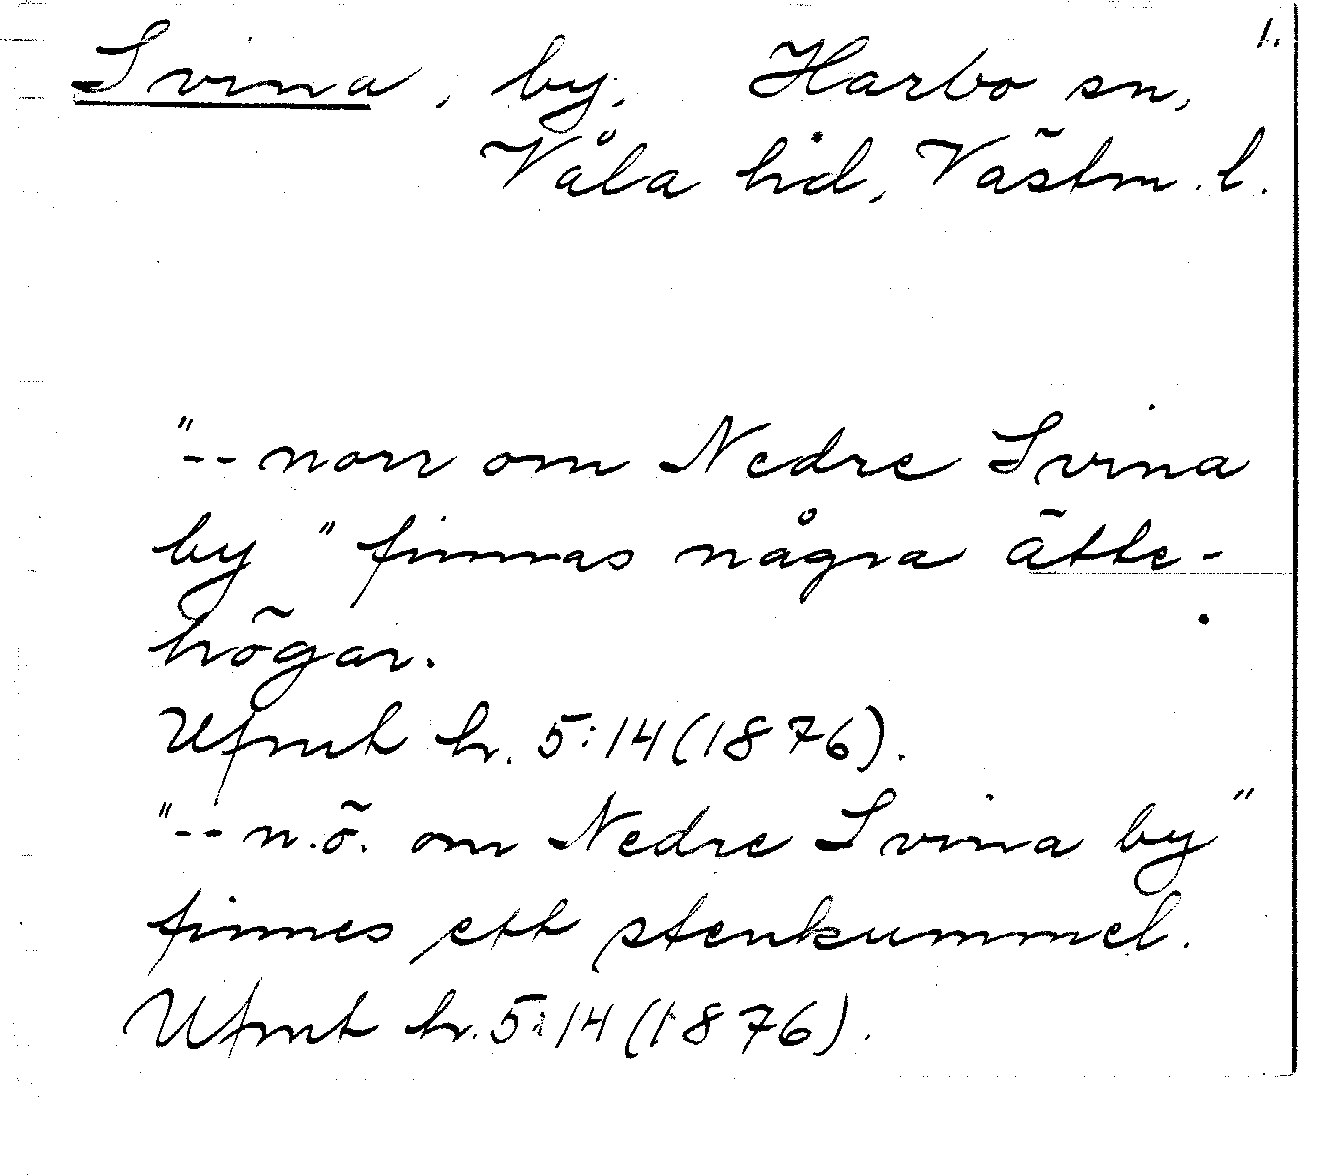 1.
Svina, by, Harbo sn,
Våla hd, Västm. l.
"-- norr om Nedre Svina
by" finnas några ätte-
högar.
Ufmt hr. 5:14 (1876).
"-- n.ö. om Nedre Svina by"
finnes ett stenkummel.
Ufmt hr. 5:14 (1876).